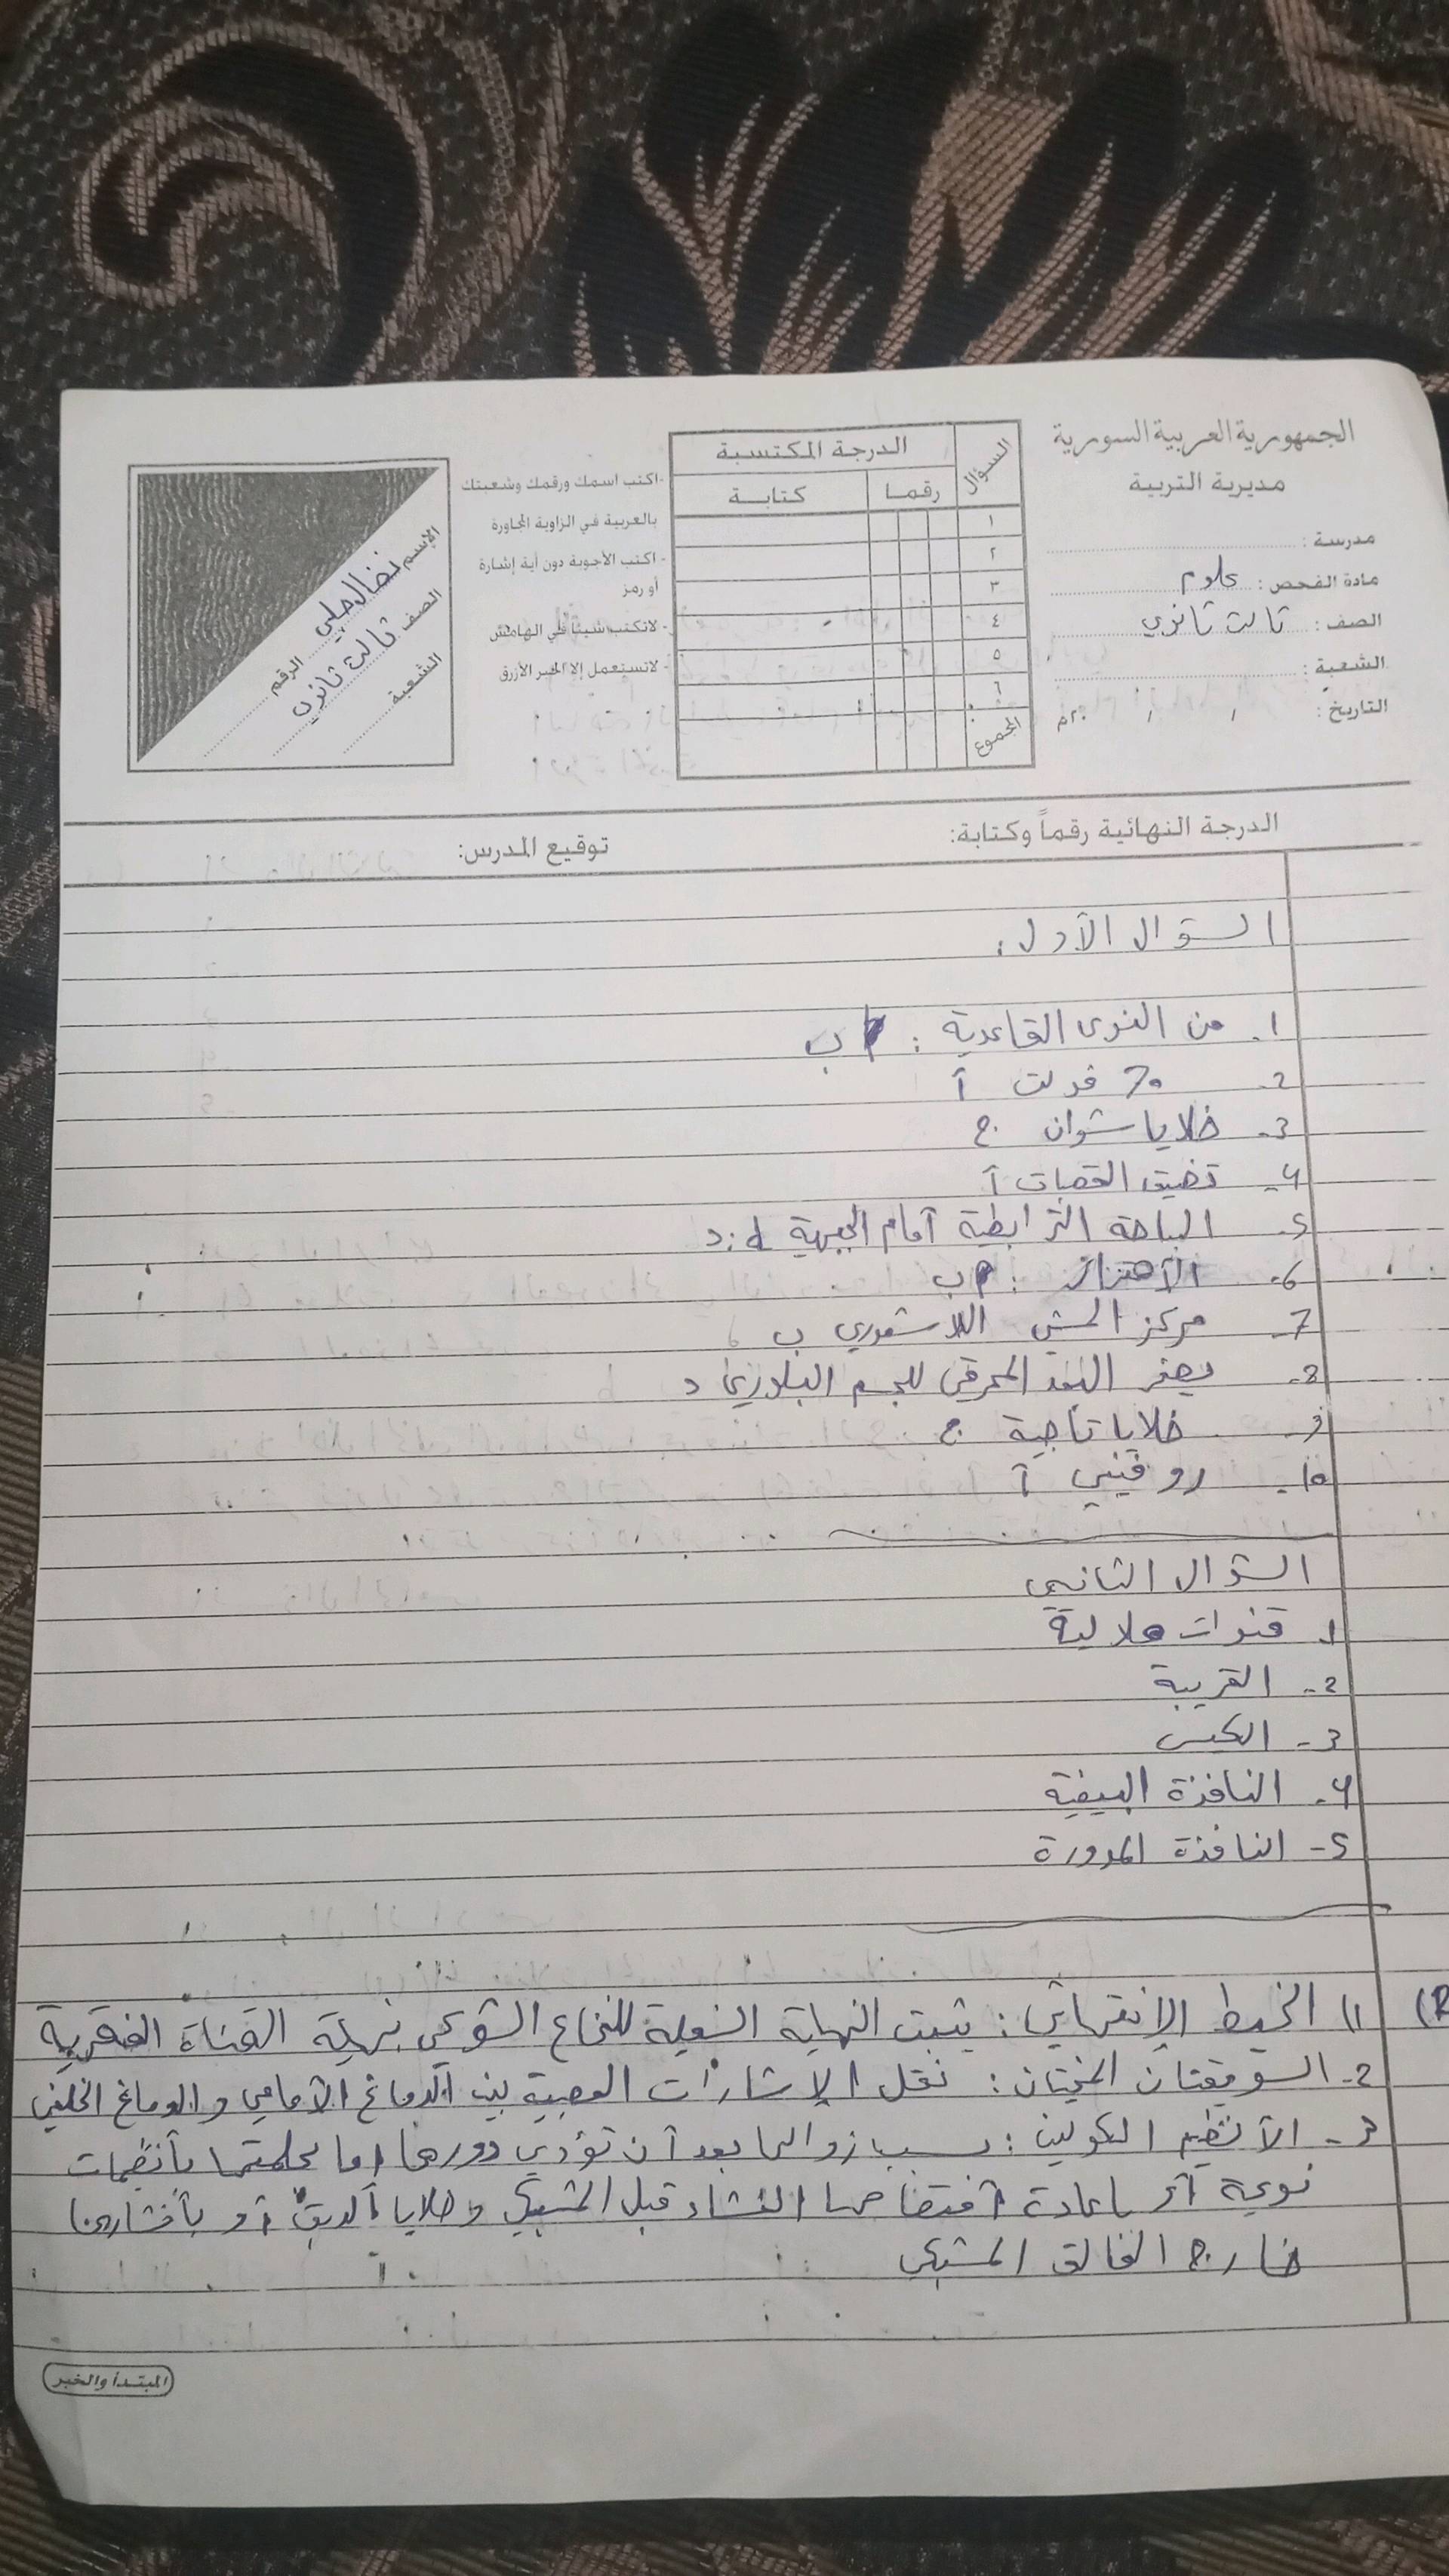 الجمهورية العربية السورية
مديرية التربية
مدرسة :
مادة الفحص : علوم
الصف : ثالث ثانوي
الشعبة :
التاريخ : / / ٢٠م
السؤال
الدرجة المكتسبة
رقما
كتابة
١
٢
٣
٤
٥
٦
المجموع
-اكتب اسمك ورقمك وشعبتك
بالعربية في الزاوية المجاورة
- اكتب الأجوبة دون أية إشارة
أو رمز
- لاتكتب شيئا في الهامش
- لاتستعمل إلا الحبر الأزرق
الإسم نضال حلبي
الرقم
الصف ثالث ثانوي
الشعبة
الدرجة النهائية رقماً وكتابة:
توقيع المدرس:
السؤال الأول:
1. من النوى القاعدية : ب
2- 70 فولت أ
3- خلايا شوان ج
4- تضيق القصبات أ
5- الباحة الترابطية أمام الجبهية : د
6- الأهتزاز : ب
7- مركز الحس اللاشعوري ب
8- يصغر البعد المحرقي للجسم البلوري د
9- خلايا تاجية ج
10- روفيني أ
السؤال الثاني
1. قنوات هلالية
2- القريبة
3- الكيس
4- النافذة البيضية
5- النافذة المدورة
1) الخيط الإنتهائي : يثبت النهاية السفلية للنخاع الشوكي بنهاية القناة الفقرية
2- السويقتان المخيتان : نقل الإشارات العصبية بين الدماغ الأمامي والدماغ الخلفي
3- الأنظيم الكولين : يسبب زوالها بعد أن تؤدي دورها إما بحلمتها بأنظيمات
نوعية أو بإعادة امتصاصها الغشاء قبل المشبكي وخلايا الدبق أو بأنتشارها
خارج الفالق المشبكي
المبتدأ والخبر